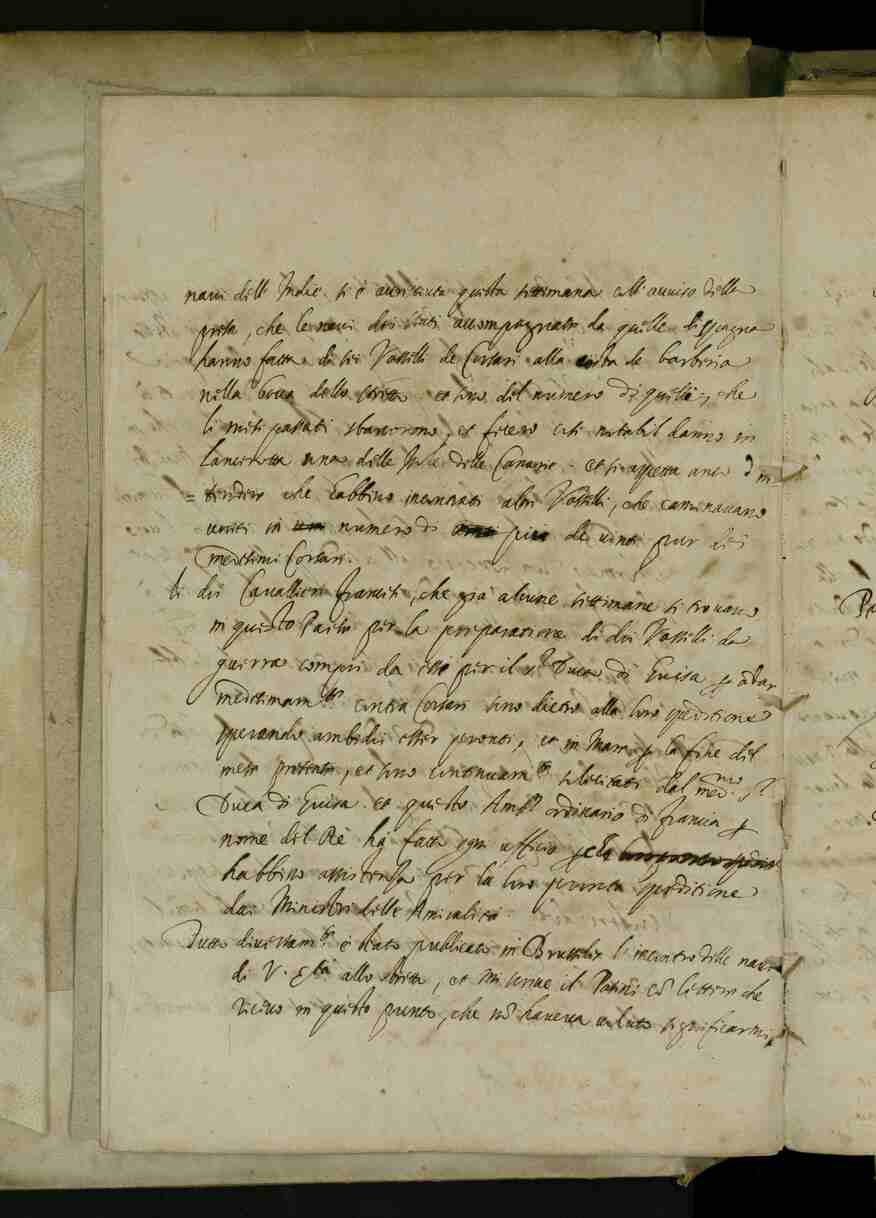 navi dell Indie. si è avvivata questa settimana coll avviso della
presa, che le navi dei Stati accompagnate da quelle di spagna
hanno fatta di sei Vasselli de Corsari alla costa de barberia
nella bocca dello stretto et sono del numero di quelli, che
li mesi passati sbarcorono, et fecero così notabil danno in
Lancerotta una delle Isole delle Canarie. et si aspetta anco d'in-
= tendere che habbino incontrati altri Vasselli, che caminavano
uniti in numero di più de vinti pur dei
medesimi Corsari.
Li doi Cavallieri francesi, che già alcune settimane si trovano
in questo Paese per la preparatione di doi Vasselli da
guerra compri da essi per il sr. Duca di Guisa p. andar
medesimamte. contra Corsari sono dietro alla loro speditione
sperando ambidoi esser pronti, et in Mare p. la fine del
mese presente, et sono continuamte. sollecitati dal medmo. sr.
Duca di Guisa. et questo Ambr. ordinario di francia p.
nome del Rè ha fatto ogni officio
habbino assistenza per la loro pronta speditione
dai Ministri delle Amiralità.
Tutto diversamte. è stato publicato in Brusselles l'incontro delle navi
di V. Stà allo stretto, et mi scrive il Pasini cõ lettere che
ricevo in questo punto, che nõ haveva voluto significarmi